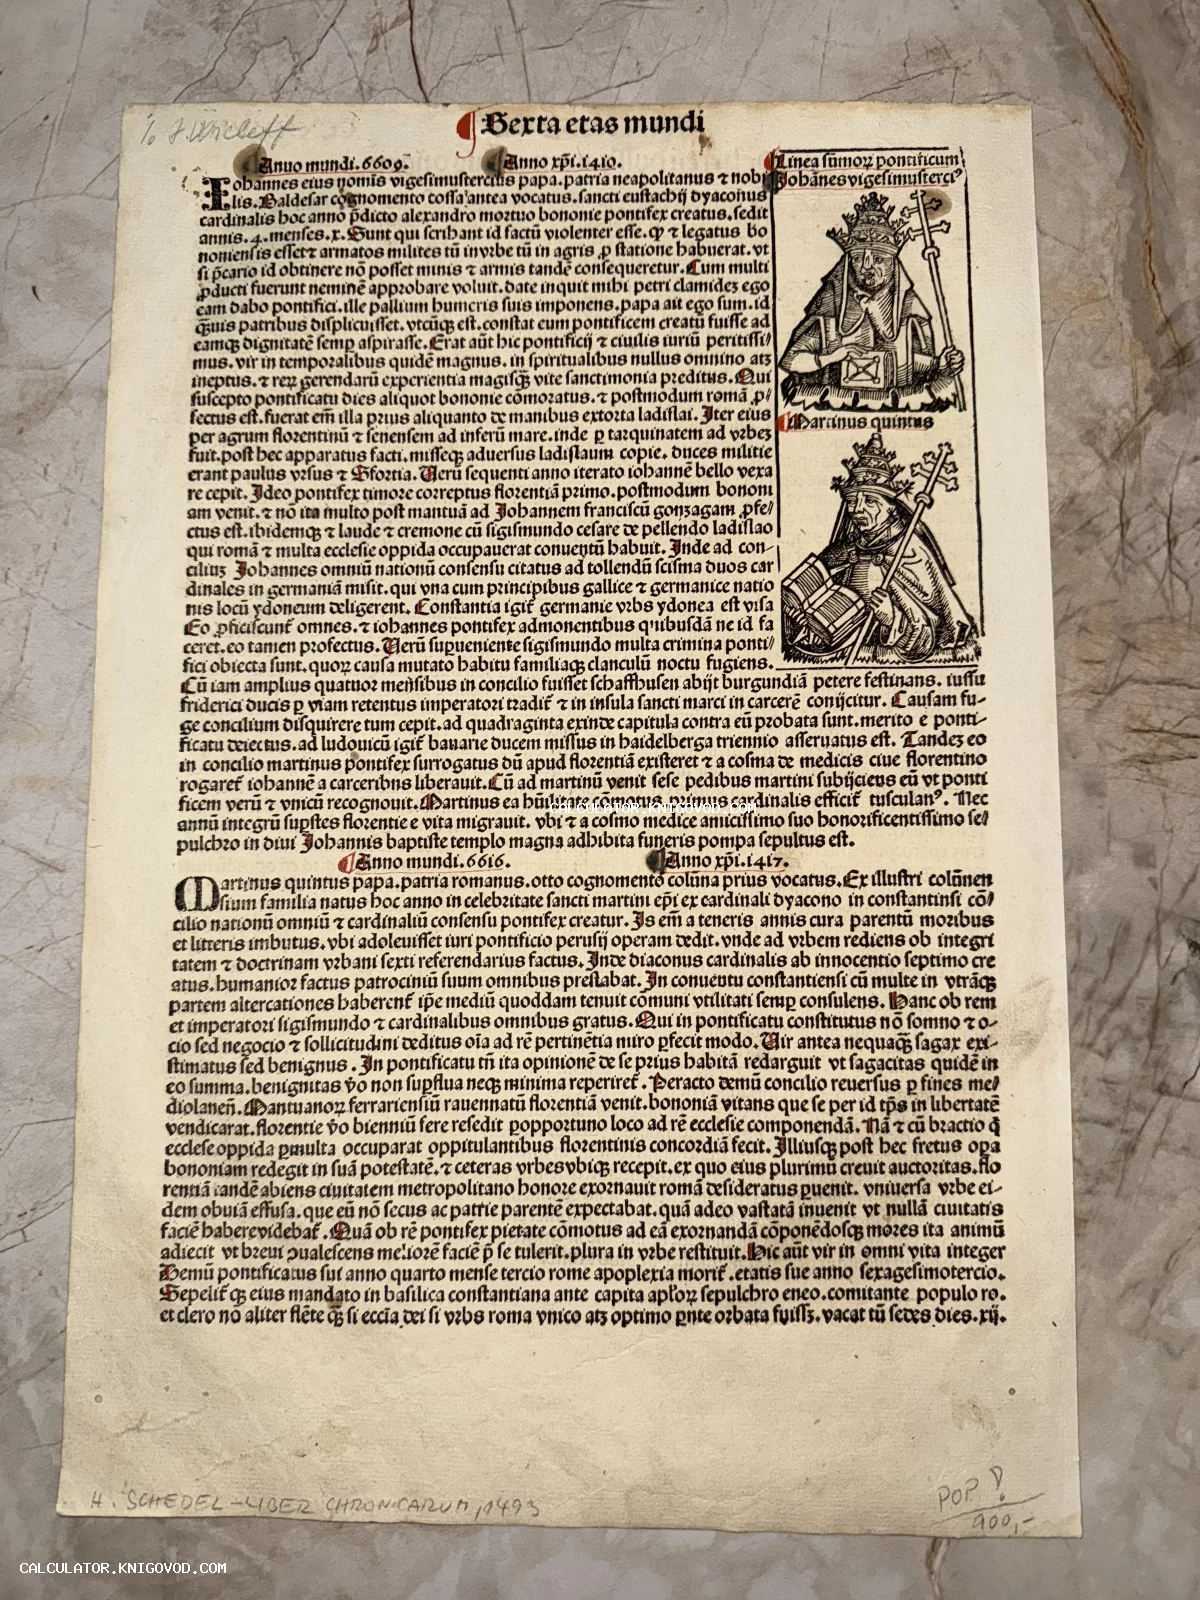 ½ J. Wicleff
Sexta etas mundi
Anno mundi.6609. Anno xp̄i.1410.
Linea sūmoꝝ pontificum
Johānes vigesimusterciꝰ
Iohannes eius nomīs vigesimustercius papa.patria neapolitanus ⁊ nobi
lis.Baldesar cognomento cossa antea vocatus.sancti eustachij dyaconus
cardinalis hoc anno p̄dicto alexandro mortuo bononie pontifex creatus.sedit
annis.4.menses.x.Sunt qui scribant id factū violenter esse.ꝙ ⁊ legatus bo
noniensis esset ⁊ armatos milites tū in vrbe tū in agris ꝓ statione habuerat.vt
si p̄cario id obtinere nō posset minis ⁊ armis tandē consequeretur.Cum multi
ꝓducti fuerunt neminē approbare voluit.date inquit mihi petri clamidez ego
eam dabo pontifici.ille pallium humeris suis imponens.papa ait ego sum.id
qꝫuis patribus displicuisset.vtcūqꝫ est.constat eum pontificem creatū fuisse ad
eamqꝫ dignitatē semꝑ aspirasse.Erat aūt hic pontificij ⁊ ciuilis iuriū peritissi-
mus.vir in temporalibus quidē magnus.in spiritualibus nullus omnino atqꝫ
ineptus.⁊ reꝝ gerendarū experientia magisqꝫ̄ vite sanctimonia preditus.Qui
suscepto pontificatu dies aliquot bononie cōmoratus.⁊ postmodum romā ꝓ-
fectus est.fuerat em̄ illa prius aliquanto de manibus extorta ladislai.Iter eius
per agrum florentinū ⁊ senensem ad inferū mare.inde ꝑ tarquinatem ad vrbez
fuit.post hec apparatus facti.misseqꝫ aduersus ladislaum copie.duces militie
erant paulus vrsus ⁊ Sfortia.Verū sequenti anno iterato iohannē bello vexa
re cepit.Ideo pontifex timore correptus florentiā primo.postmodum bononi
am venit.⁊ nō ita multo post mantuā ad Johannem franciscū gonzagam ꝓfe-
ctus est.ibidemqꝫ ⁊ laude ⁊ cremone cū sigismundo cesare de pellendo ladislao
qui romā ⁊ multa ecclesie oppida occupauerat conuentū habuit.Inde ad con-
ciliuz Johannes omniū nationū consensu citatus ad tollendū scisma duos car
dinales in germaniā misit.qui vna cum principibus gallice ⁊ germanice natio
nis locū ydoneum deligerent.Constantia igit̄ germanie vrbs ydonea est visa
Eo ꝓficiscunt̄ omnes.⁊ iohannes pontifex admonentibus quibusdā ne id fa
ceret.eo tamen profectus.Verū superueniente sigismundo multa crimina ponti-
fici obiecta sunt.quoꝝ causa mutato habitu familiaqꝫ clanculū noctu fugiens.
Martinus quintus
Cū iam amplius quatuor mensibus in concilio fuisset schaffhusen abijt burgundiā petere festinans.iussu
friderici ducis ꝑ viam retentus imperatori tradit̄ ⁊ in insula sancti marci in carcerē conijcitur.Causam fu-
ge concilium disquirere tum cepit.ad quadraginta exinde capitula contra eū probata sunt.merito e ponti-
ficatu deiectus.ad ludouicū igit̄ bauarie ducem missus in haidelberga triennio asseruatus est.Tandez eo
in concilio martinus pontifex surrogatus dū apud florentiā existeret ⁊ a cosma de medicis ciue florentino
rogaret̄ iohannē a carceribus liberauit.Cū ad martinū venit sese pedibus martini subijciens eū vt ponti
ficem verū ⁊ vnicū recognouit.Martinus ea hūilitate cōmotus primus cardinalis efficit̄ tusculanꝰ.Nec
CALCULATOR.KNIGOVOD.COM
annū integrū suꝑstes florentie e vita migrauit.vbi ⁊ a cosmo medice amicissimo suo honorificentissimo se-
pulchro in diui Johannis baptiste templo magna adhibita funeris pompa sepultus est.
Anno mundi.6616. Anno xp̄i.1417.
Martinus quintus papa.patria romanus.otto cognomento colūna prius vocatus.Ex illustri colūnen
sium familia natus hoc anno in celebritate sancti martini ep̄i ex cardinali dyacono in constantinsi cō-
cilio nationū omniū ⁊ cardinaliū consensu pontifex creatur.Is em̄ a teneris annis cura parentū moribus
et litteris imbutus.vbi adoleuisset iuri pontificio perusij operam dedit.vnde ad vrbem rediens ob integri
tatem ⁊ doctrinam vrbani sexti referendarius factus.Inde diaconus cardinalis ab innocentio septimo cre
atus.humanior factus patrociniū suum omnibus prestabat.In conuentu constantiensi cū multe in vtrāqꝫ
partem altercationes haberent̄ ip̄e mediū quoddam tenuit cōmuni vtilitati semꝑ consulens.Hanc ob rem
et imperatori sigismundo ⁊ cardinalibus omnibus gratus.Qui in pontificatu constitutus nō somno ⁊ o-
cio sed negocio ⁊ sollicitudini deditus oīa ad rē pertinētia miro ꝑfecit modo.Vir antea nequaqꝫ̄ sagax exi-
stimatus sed benignus.In pontificatu tn̄ ita opinionē de se prius habitā redarguit vt sagacitas quidē in
eo summa.benignitas v̄o non suꝑflua neqꝫ minima reperiret̄.Peracto demū concilio reuersus ꝑ fines me-
diolaneñ.Mantuanoꝝ ferrariensiū rauennatū florentiā venit.bononiā vitans que se per id tp̄s in libertatē
vendicarat.florentie v̄o bienniū fere resedit ꝑopportuno loco ad rē ecclesie componendā.Nā ⁊ cū bractio q̄
ecclese oppida ꝑmulta occuparat oppitulantibus florentinis concordiā fecit.Illiusqꝫ post hec fretus opa
bononiam redegit in suā potestatē.⁊ ceteras vrbes vbiqꝫ recepit.ex quo eius plurimū creuit auctoritas.flo
rentiā tandē abiens ciuitatem metropolitano honore exornauit romā desideratus ꝑuenit.vniuersa vrbe ei-
dem obuiā effusa.que eū nō secus ac patrie parentē expectabat.quā adeo vastatā inuenit vt nullā ciuitatis
faciē habere videbat̄.Quā ob rē pontifex pietate cōmotus ad eā exornandā cōponēdosqꝫ mores ita animū
adiecit vt breui ↄualescens meliorē faciē p̄ se tulerit.plura in vrbe restituit.Hic aūt vir in omni vita integer
Demū pontificatus sui anno quarto mense tercio rome apoplexia morit̄.etatis sue anno sexagesimotercio.
Sepelit̄ qꝫ eius mandato in basilica constantiana ante capita apl̄oꝝ sepulchro eneo.comitante populo ro.
et clero nō aliter flēte qꝫ̄ si eccīa dei si vrbs roma vnico atqꝫ optimo ꝑnte orbata fuissꝫ.vacat tū sedes dies.xij.
H. SCHEDEL – LIBER CHRONICARUM, 1493
POP.
900,-
CALCULATOR.KNIGOVOD.COM